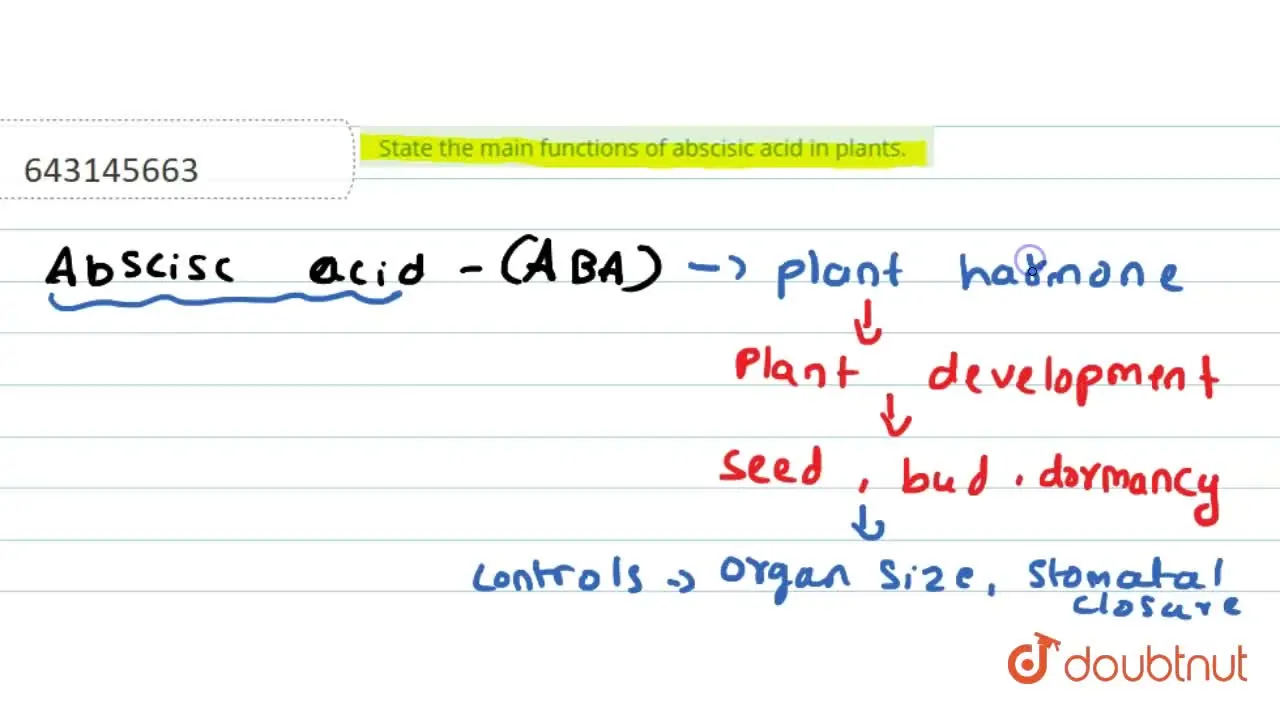 State the main functions of abscisic acid in plants.
643145663
Abscisc acid - (ABA) → plant harmone
↓
Plant development
↓
seed , bud . dormancy
↓
controls → organ size, stomatal
closure
doubtnut